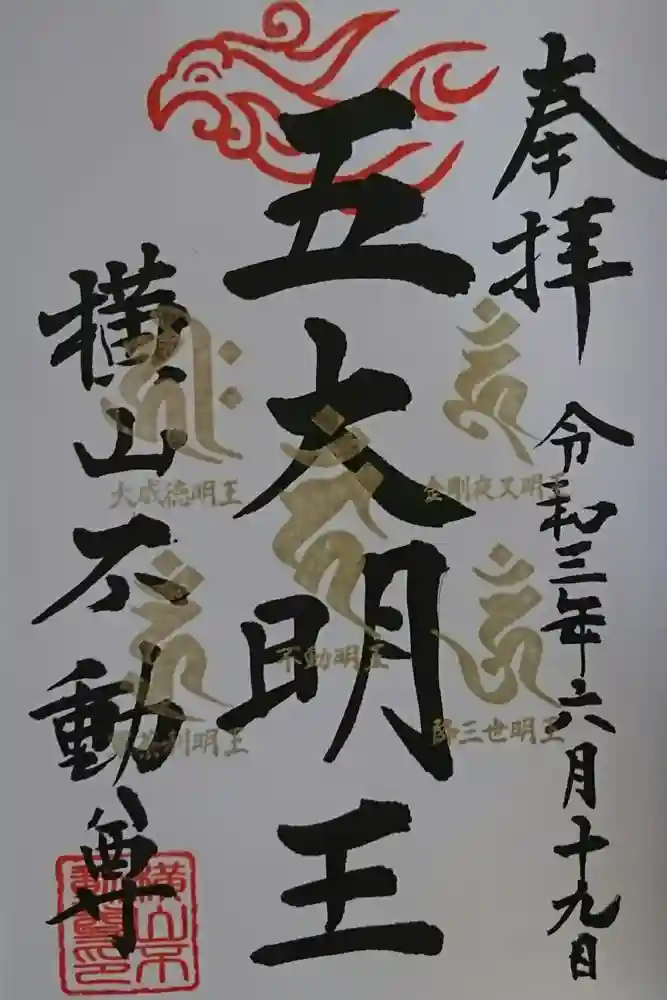 奉拝
令和三年六月十九日
五大明王
金剛夜叉明王
降三世明王
不動明王
大威徳明王
軍荼利明王
横山不動尊
横山不
動尊印